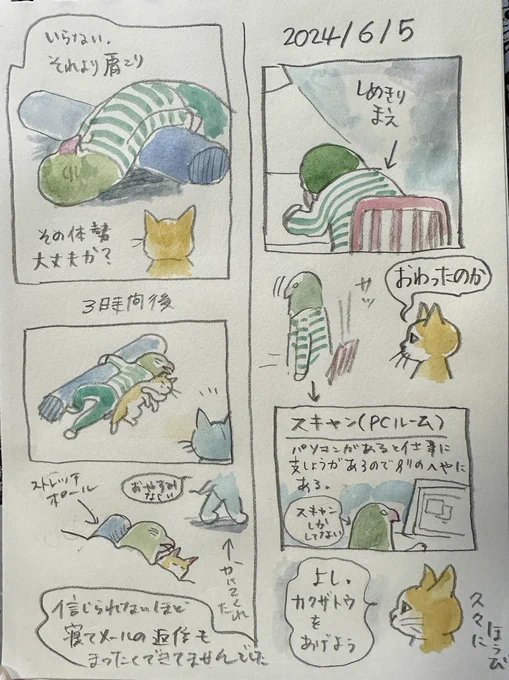 2024/6/5
しめきり
まえ
サッ
おわったのか
スキャン(PCルーム)
パソコンがあると仕事に
支しょうがあるので別のへやに
ある。
スキャン
しか
してない
よし。
カクザトウ
を
あげよう
久々に
ほうび
いらない。
それより肩こり
その体勢
大丈夫か?
3時間後
ストレッチ
ポール
おやすみ
なさい
信じられないほど
寝てメールの返信も
まったくできてませんでした